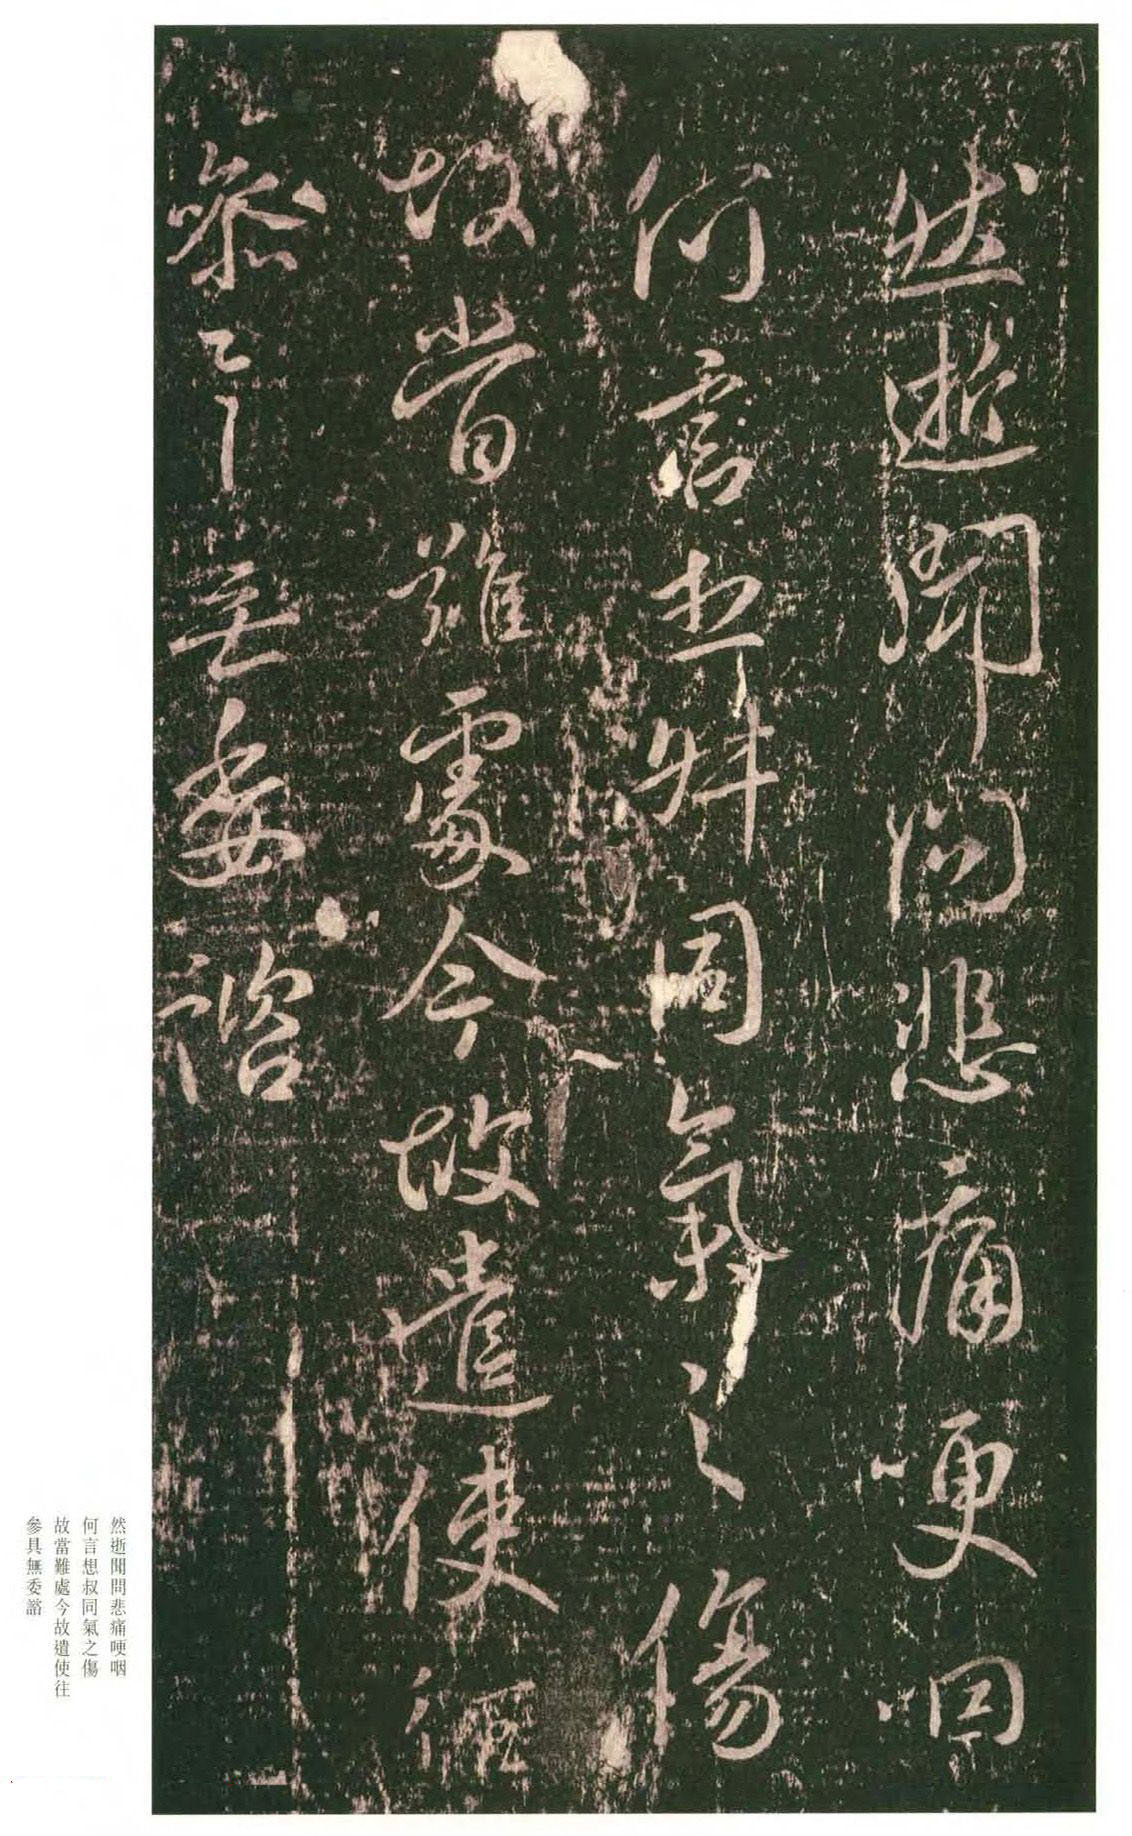 然逝聞問悲痛哽咽
何言想叔同氣之傷
故當難處今故遣使往
參具無委諮
然逝聞問悲痛哽咽
何言想叔同氣之傷
故當難處今故遣使往
參具無委